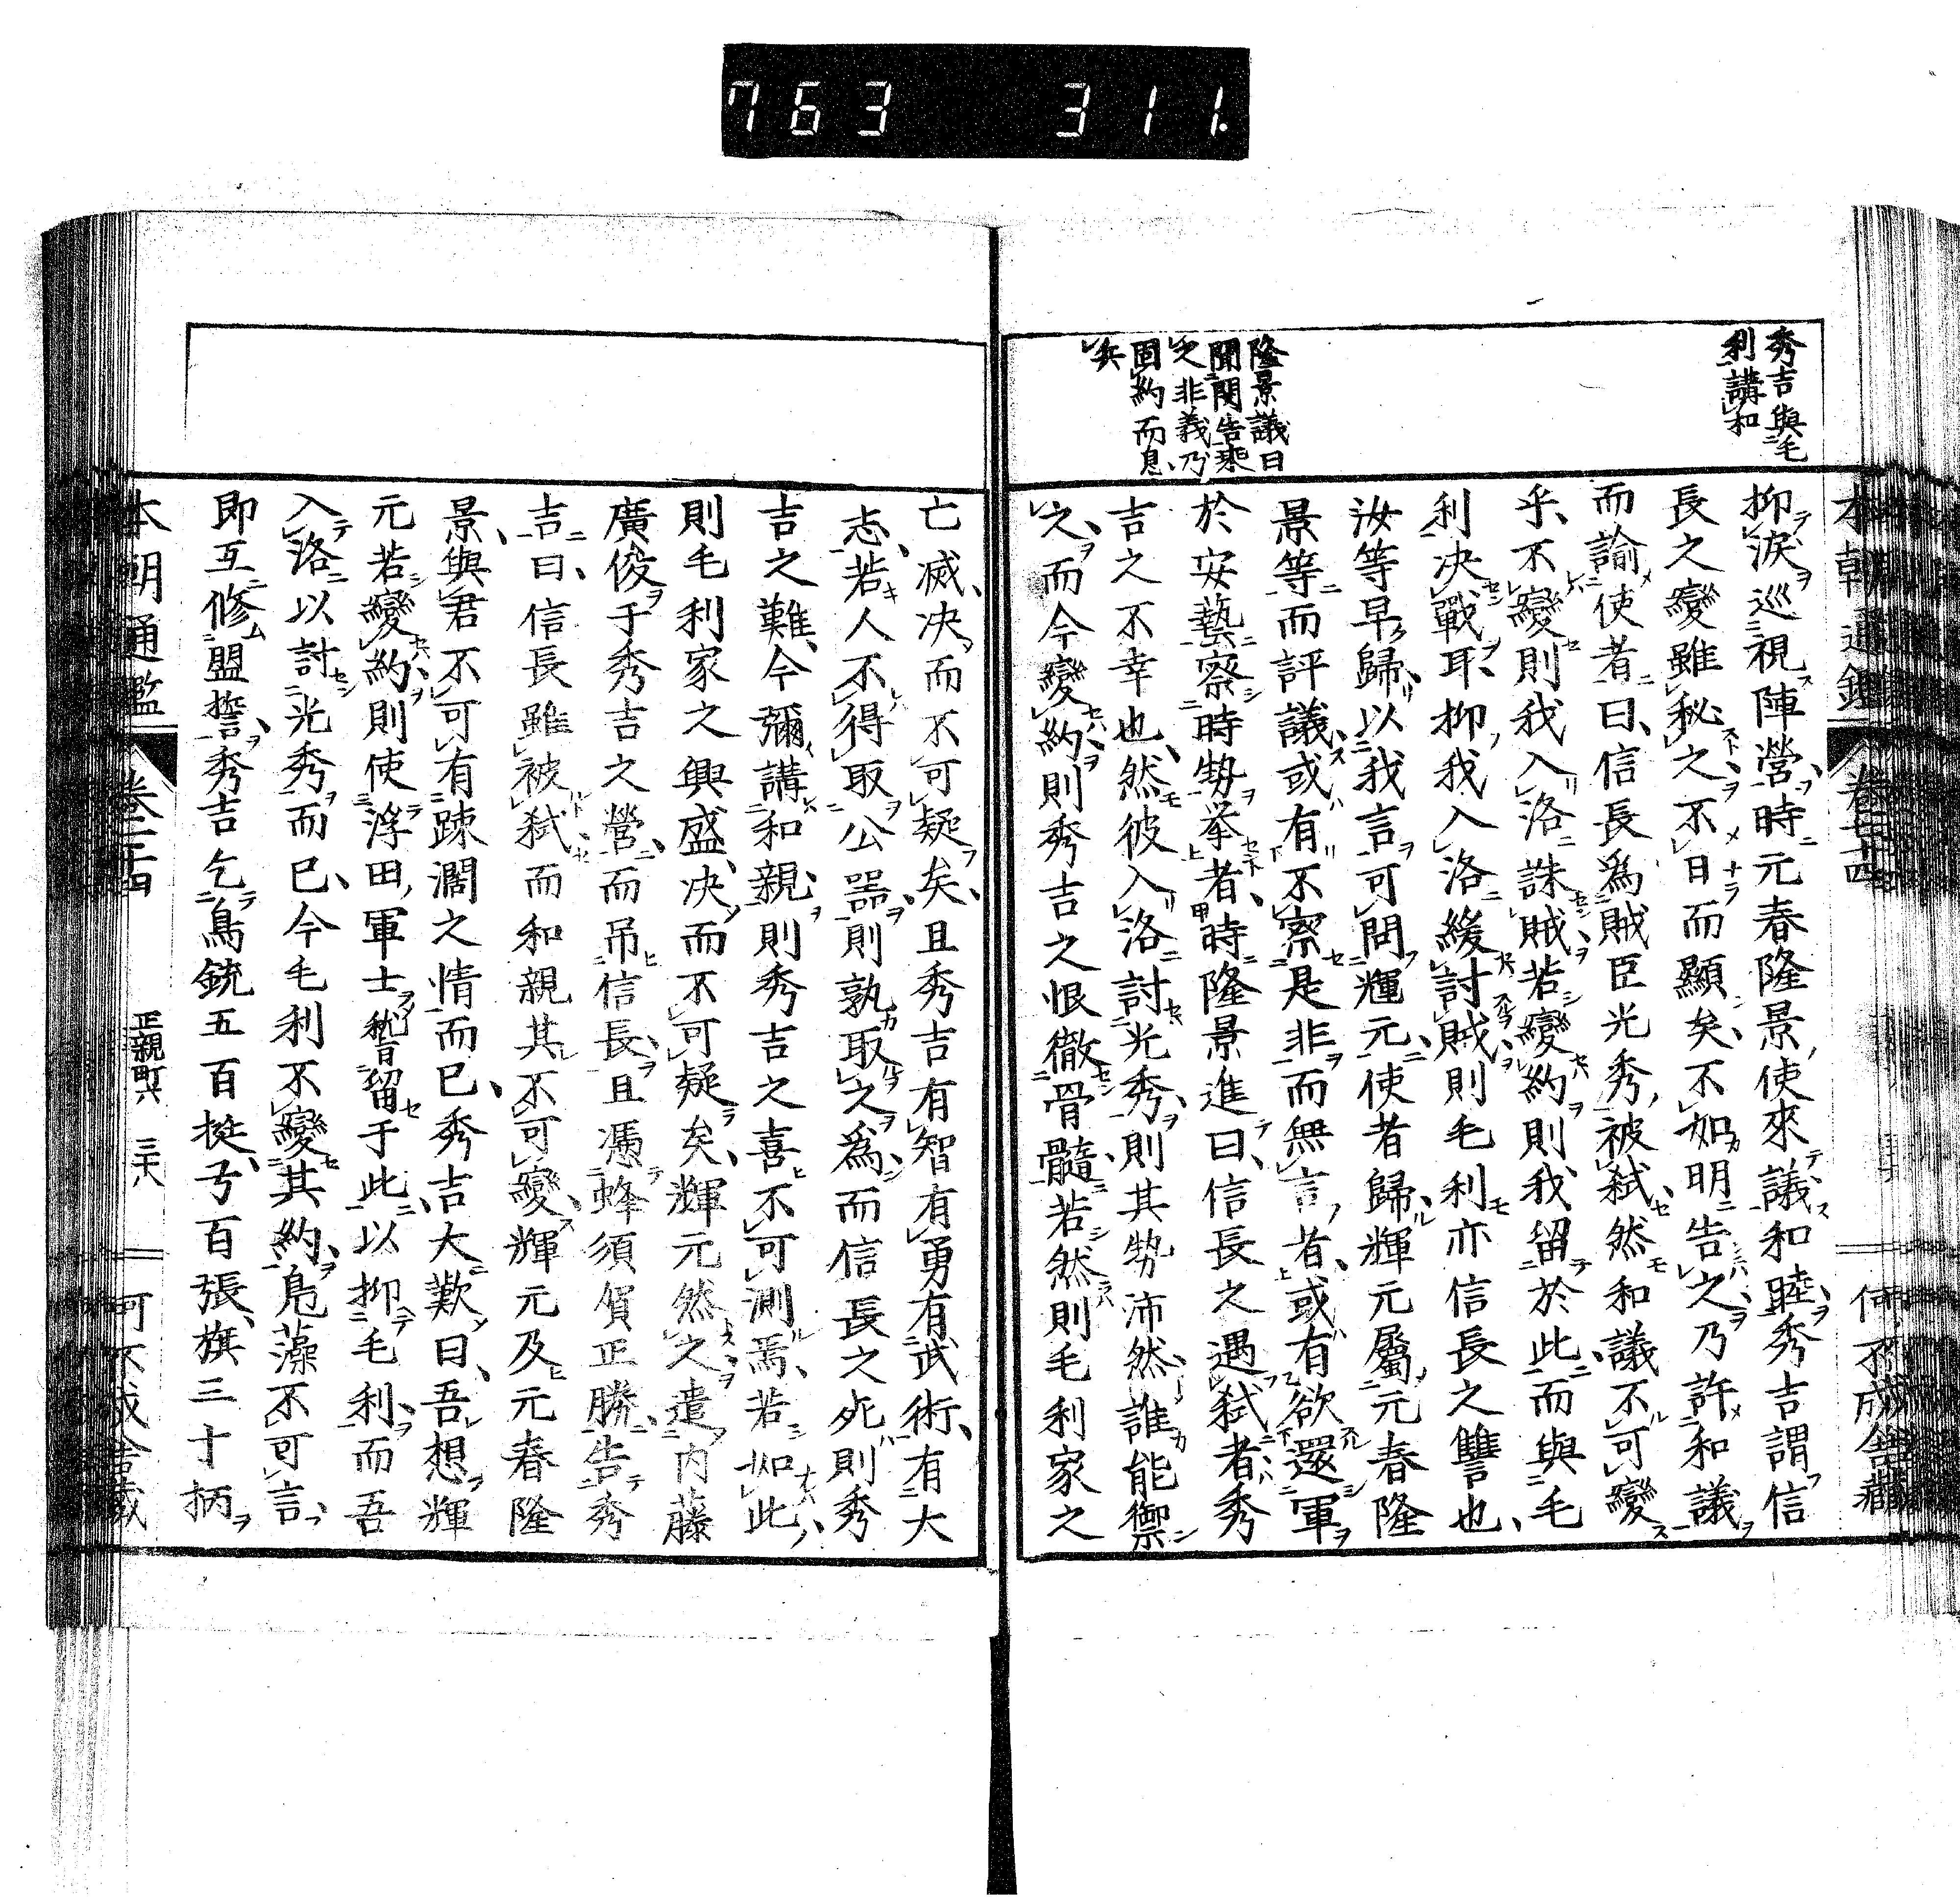 763 311.
秀吉與毛
利講和
隆景議曰
聞閔告乘
之非義乃
固約而息
兵
本朝通鑑 卷七十四 何不成舎藏
抑淚巡視陣營時元春隆景使來議和睦秀吉謂信
長之變雖秘之不日而顯矣不如明告之乃許和議
而諭使者曰信長爲賊臣光秀被弑然和議不可變
乎不變則我入洛誅賊若變約則我留於此而與毛
利决戰耳抑我入洛緩討賊則毛利亦信長之讐也
汝等早歸以我言可問輝元使者歸輝元屬元春隆
景等而評議或有不察是非而無言者或有欲還軍
於安藝察時勢挙者時隆景進曰信長之遇弑者秀
吉之不幸也然彼入洛討光秀則其勢沛然誰能禦
之而今變約則秀吉之恨徹骨髓若然則毛利家之
亡滅决而不可疑矣且秀吉有智有勇有武術有大
志若人不得取公器則孰取之爲而信長之死則秀
吉之難今彌講和親則秀吉之喜不可測焉若如此
則毛利家之興盛决而不可疑矣輝元然之遣内藤
廣俊于秀吉之營而吊信長且憑蜂須賀正勝告秀
吉曰信長雖被弑而和親其不可變輝元及元春隆
景與君不可有踈濶之情而已秀吉大歎曰吾想輝
元若變約則使浮田軍士暫留于此以抑毛利而吾
入洛以討光秀而已今毛利不變其約凫藻不可言
即互修盟誓秀吉乞鳥銃五百挺弓百張旗三十柄
本朝通鑑 卷七十四 正親町六 三十八 何不成舎藏